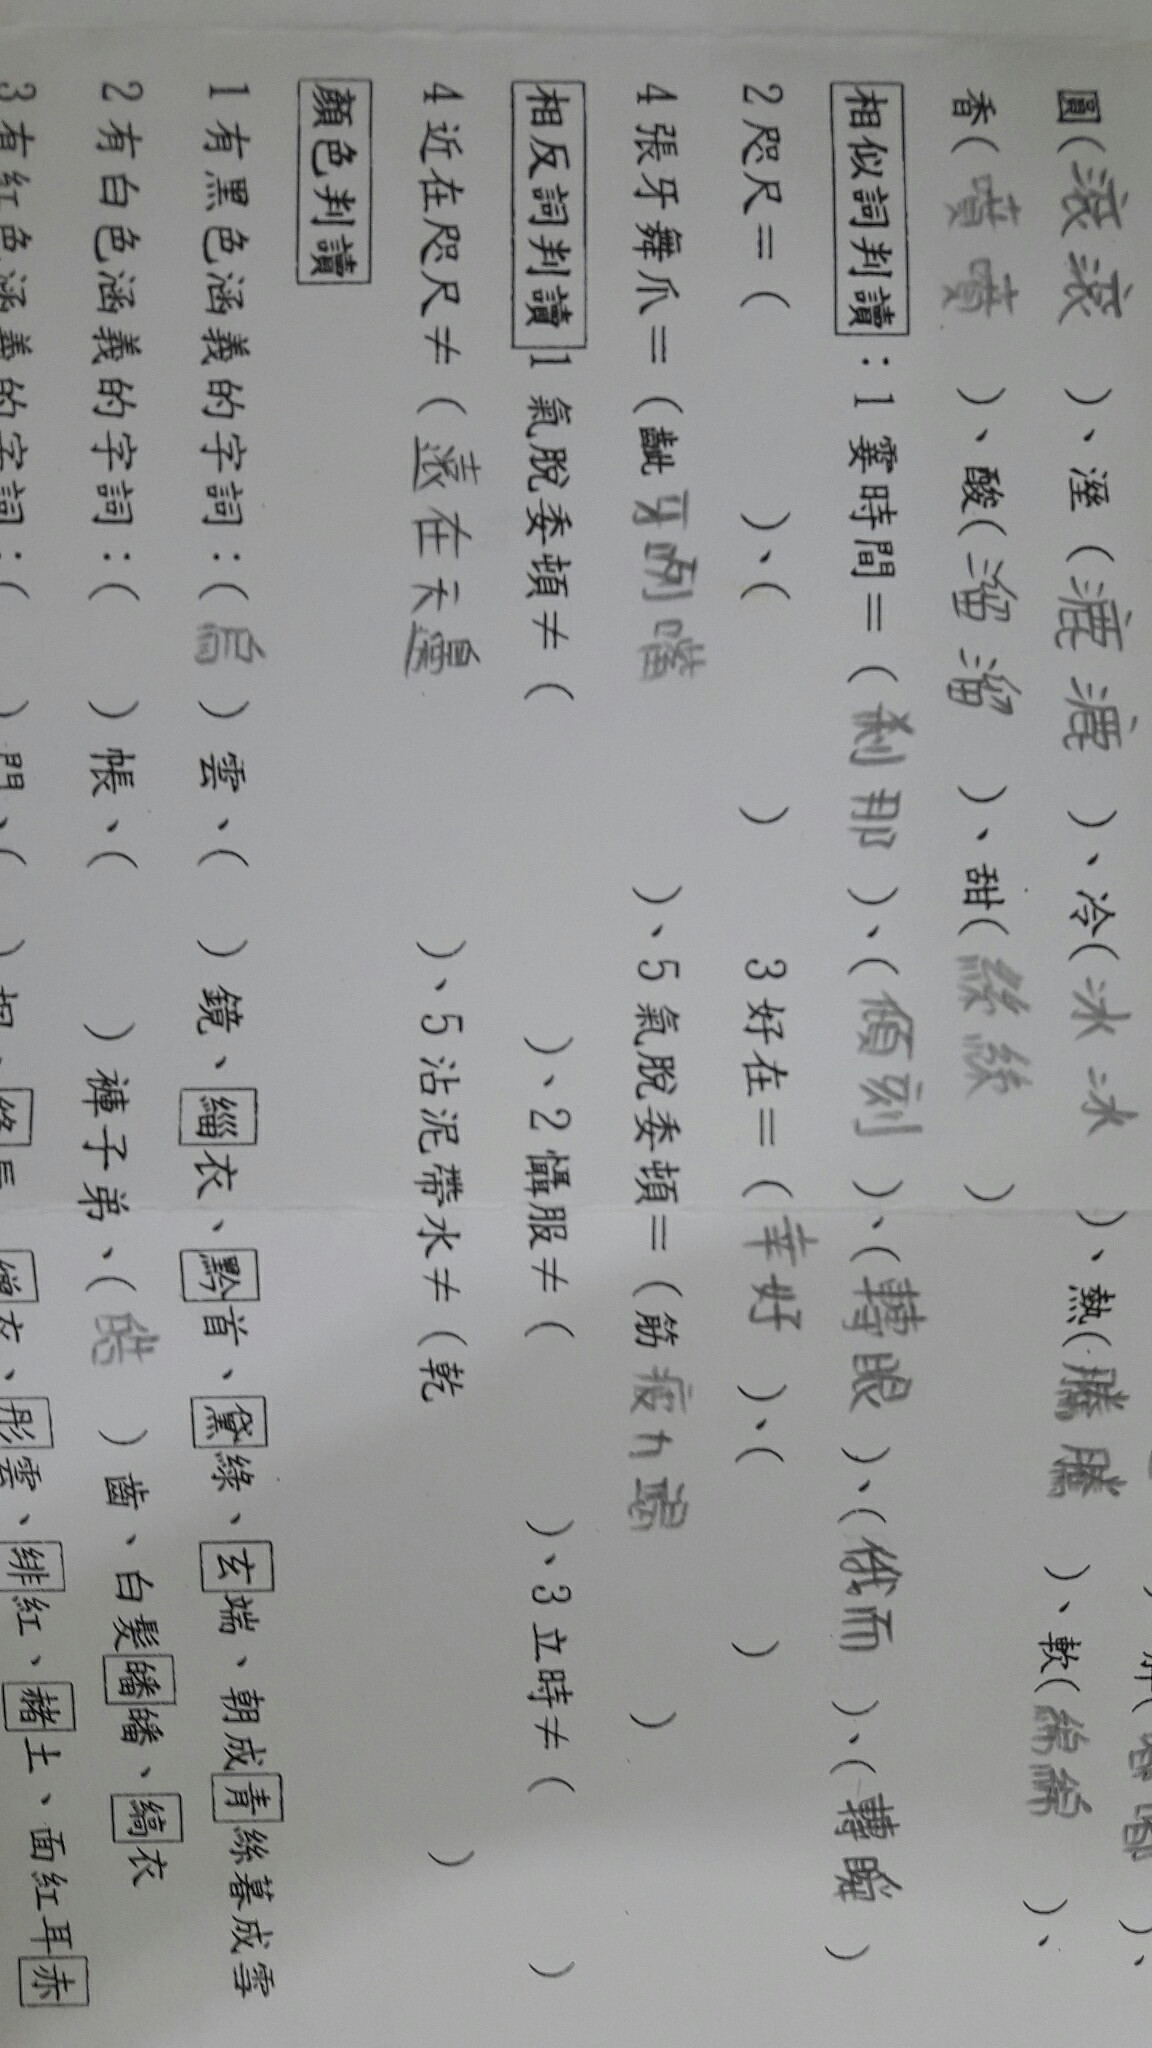 圓(滾滾)、溼(漉漉)、冷(冰冰)、熱(騰騰)、軟(綿綿)、
香(噴噴)、酸(溜溜)、甜(絲絲)
相似詞判讀：1霎時間＝(剎那)、(傾刻)、(轉眼)、(俄而)、(轉瞬)
2咫尺＝( )、( ) 3好在＝(幸好)、( )
4張牙舞爪＝(齜牙咧嘴)、5氣脫委頓＝(筋疲力竭)
相反詞判讀1氣脫委頓≠( )、2懾服≠( )、3立時≠( )
4近在咫尺≠(遠在天邊)、5沾泥帶水≠(乾 )
顏色判讀
1有黑色涵義的字詞：(烏)雲、( )鏡、緇衣、黔首、黛綠、玄端、朝成青絲暮成雪
2有白色涵義的字詞：( )帳、( )褲子弟、(皓)齒、白髮皤皤、縞衣
3有紅色涵義的字詞：( )門、( ) 衣、彤雲、緋紅、赭土、面紅耳赤